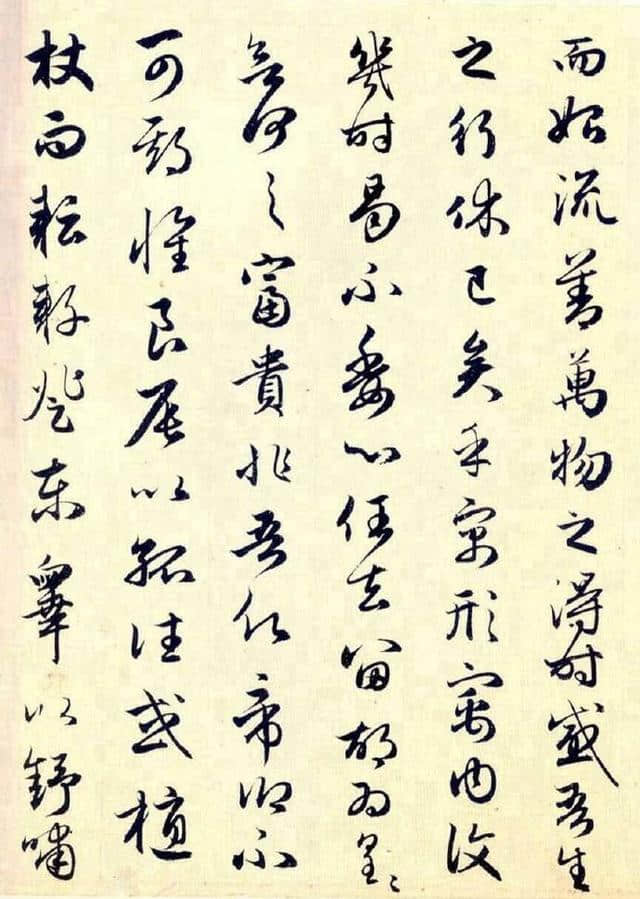 而始流善萬物之得時感吾生
之行休已矣乎寓形寓内復
幾時曷不委心任去留胡為皇〻
欲何之富貴非吾願帝鄉不
可期懷良辰以孤往或植
杖而耘耔登東皋以舒嘯